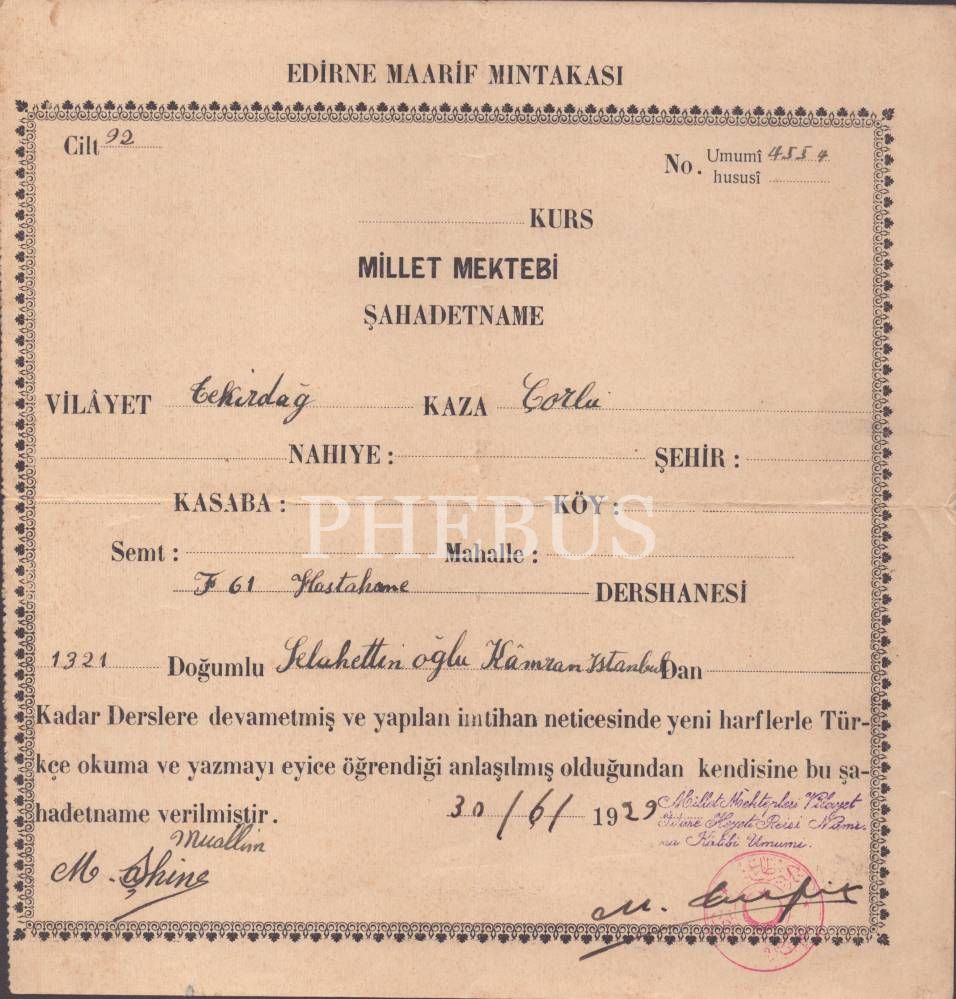 EDİRNE MAARİF MINTAKASI
Cilt 92
No. Umumî 4554
hususî
KURS
MİLLET MEKTEBİ
ŞAHADETNAME
VİLÂYET Tekirdağ KAZA Çorlu
NAHIYE : ŞEHİR :
KASABA : KÖY :
PHEBUS
Semt : Mahalle :
F 61 Hastahane DERSHANESİ
1321 Doğumlu Selahettin oğlu Kâmran Istanbul Dan
Kadar Derslere devametmiş ve yapılan imtihan neticesinde yeni harflerle Tür-
kçe okuma ve yazmayı eyice öğrendiği anlaşılmış olduğundan kendisine bu şa-
hadetname verilmiştir. 30/6/1929
Millet Mektepleri Vilayet
İdare Heyeti Reisi Namı-
na Katibi Umumi.
Muallim
M.
M.